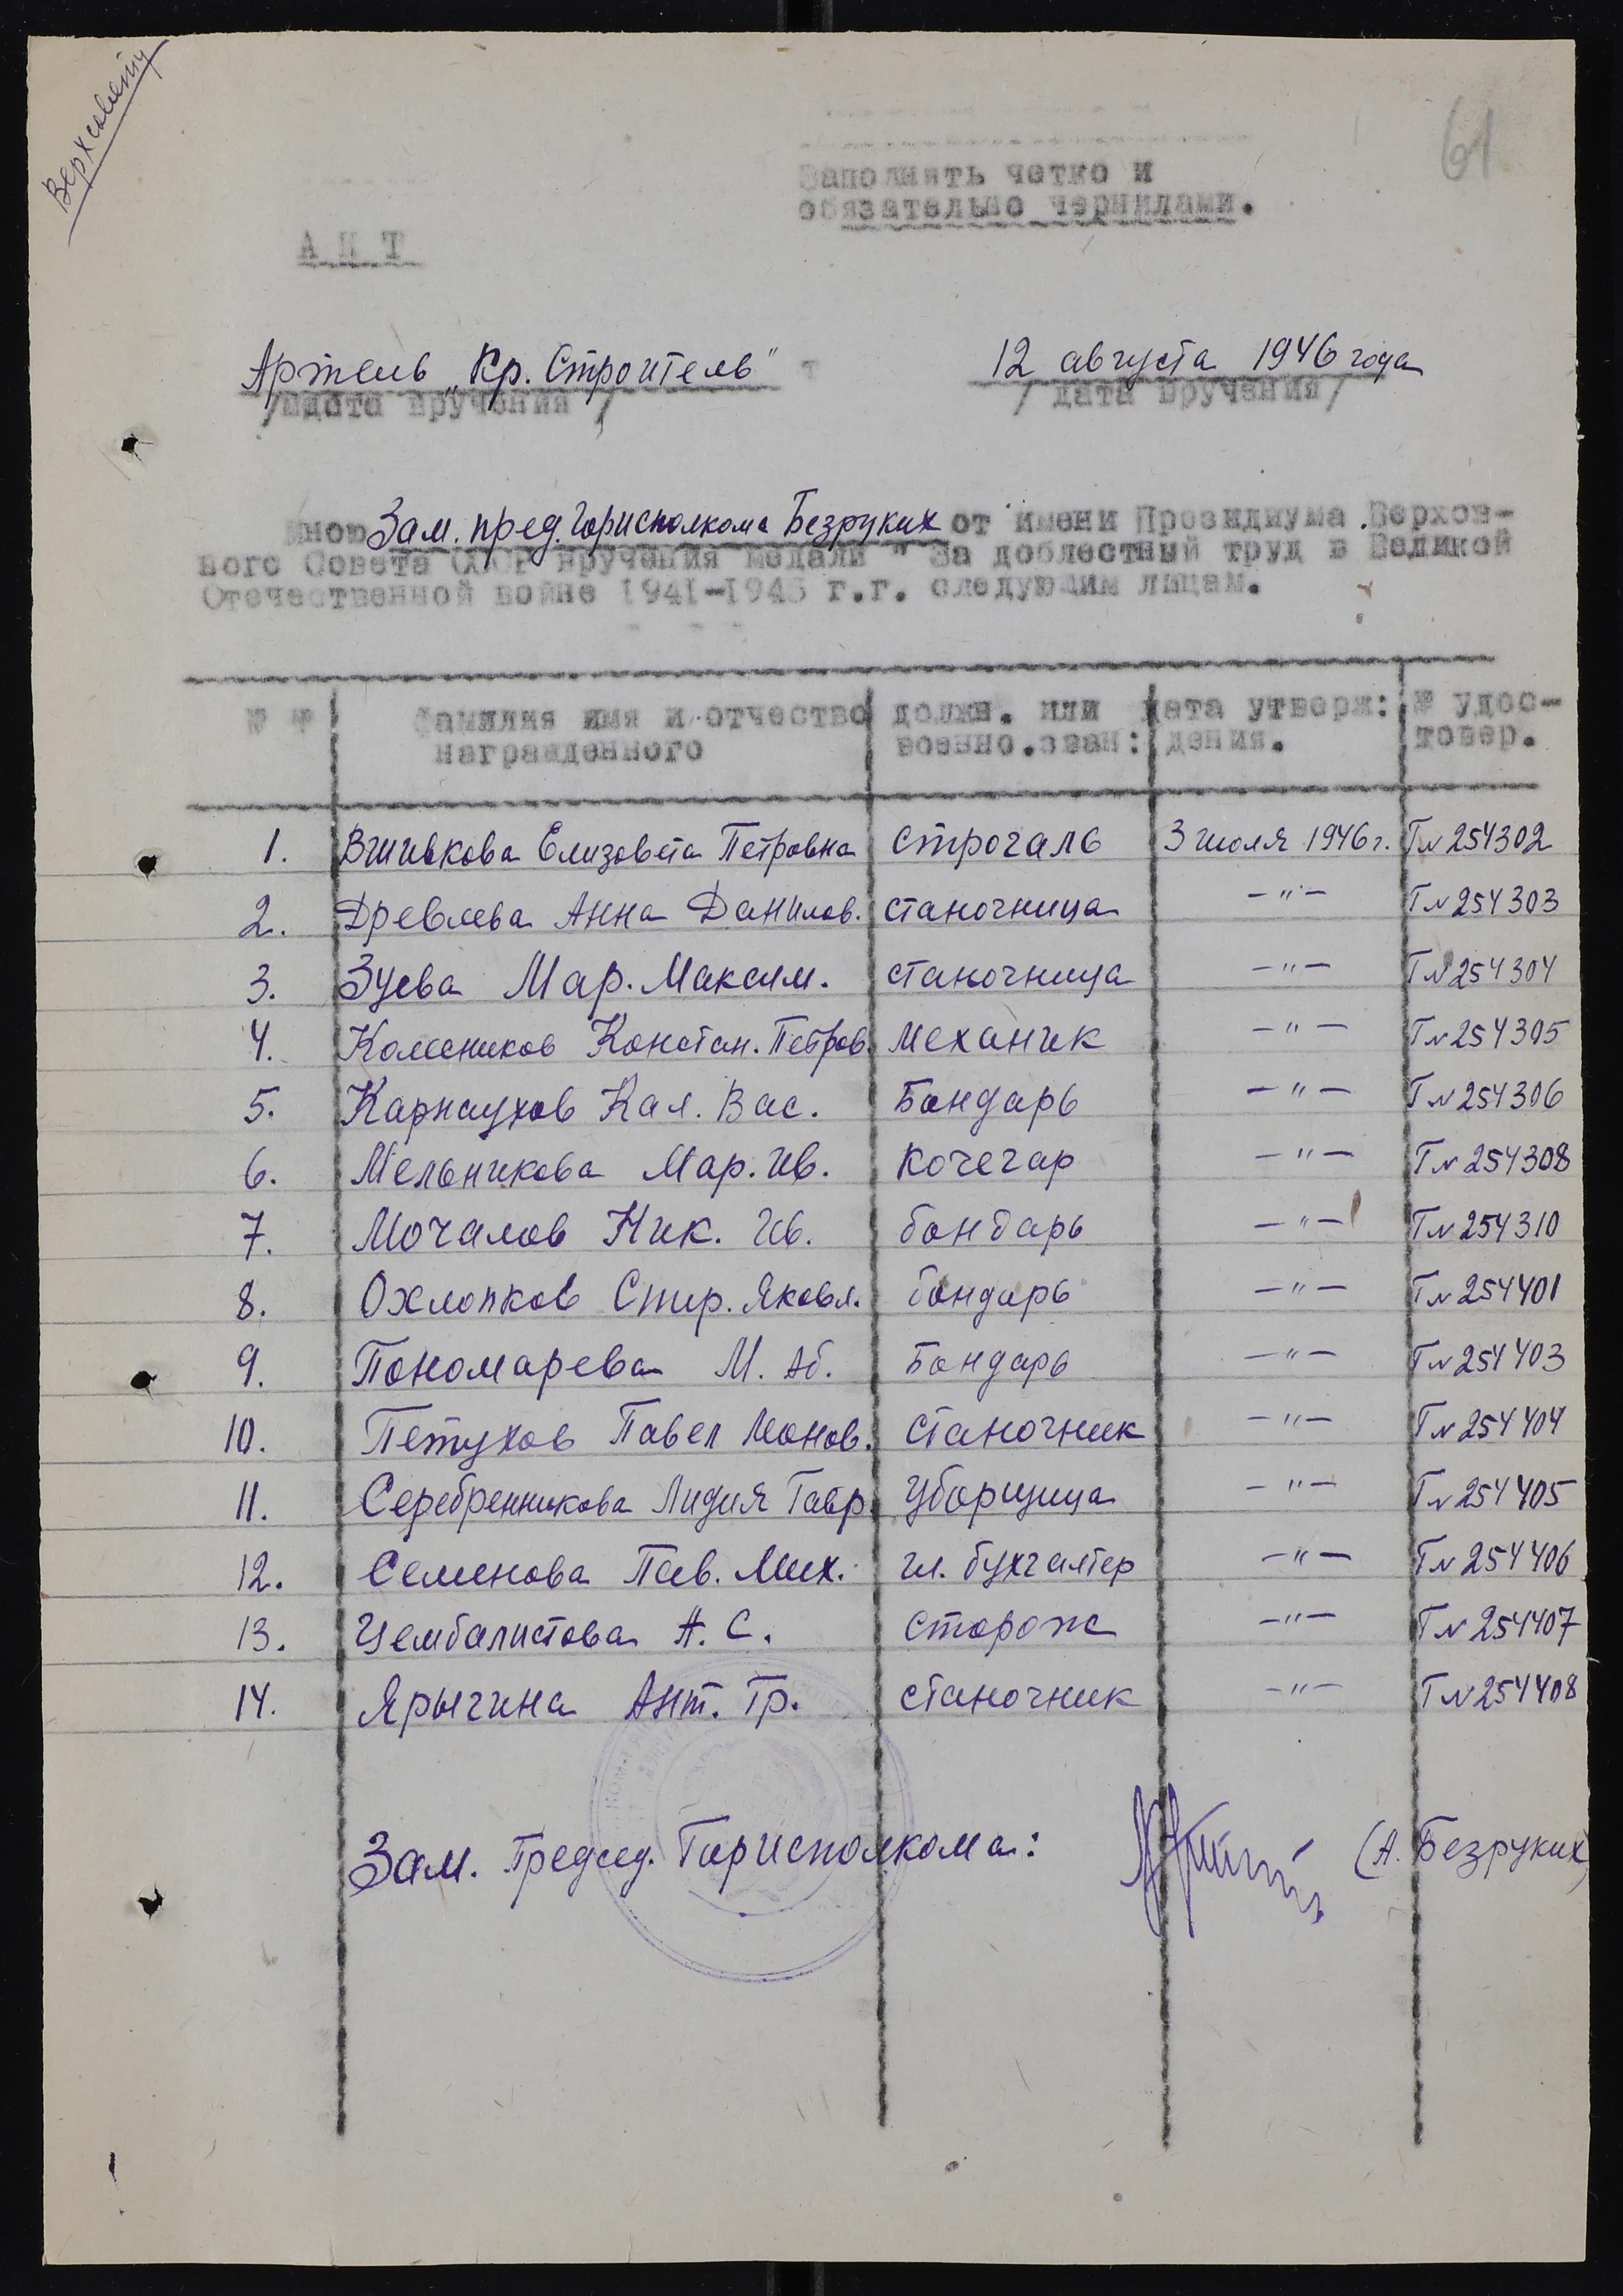 Верхсовету
61
Заполнять четко и
обязательно чернилами.
А К Т
Артель „Кр. Строитель" 12 августа 1946 года
/места вручения / / дата вручения/
Мною Зам. пред. Горисполкома Безруких от имени Президиума Верхов-
ного Совета СССР вручения медали " За доблестный труд в Великой
Отечественной войне 1941-1945 г.г. следующим лицам.
№ № Фамилия имя и отчество должн. или дата утверж: № удос-
награжденного военно.зван: дения. товер.
1. Вшивкова Елизовета Петровна Строгаль 3 июля 1946 г. Т№ 254302
2. Древлева Анна Данилов. станочница -"- Т№ 254303
3. Зуева Мар. Максим. станочница -"- Т№ 254304
4. Колесников Констан. Петров. механик -"- Т№ 254305
5. Карнаухов Кал. Вас. Бондарь -"- Т№ 254306
6. Мельникова Мар. Ив. кочегар -"- Т№ 254308
7. Мочалов Ник. Ив. бондарь -"- Т№ 254310
8. Охлопков Спир. Яковл. бондарь -"- Т№ 254401
9. Пономарева М. Аб. Бондарь -"- Т№ 254403
10. Петухов Павел Леонов. станочник -"- Т№ 254404
11. Серебренникова Лидия Гавр. уборщица -"- Т№ 254405
12. Семенова Пав. Мих. гл. бухгалтер -"- Т№ 254406
13. Цембалистова А. С. сторож -"- Т№ 254407
14. Ярыгина Ант. Гр. станочник -"- Т№ 254408
Зам. Председ. Горисполкома: (А. Безруких)